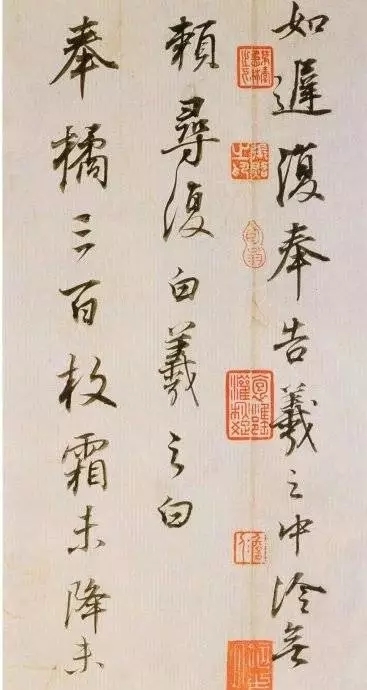 如遲復奉告羲之中冷無
賴尋復白羲之白
奉橘三百枚霜未降未